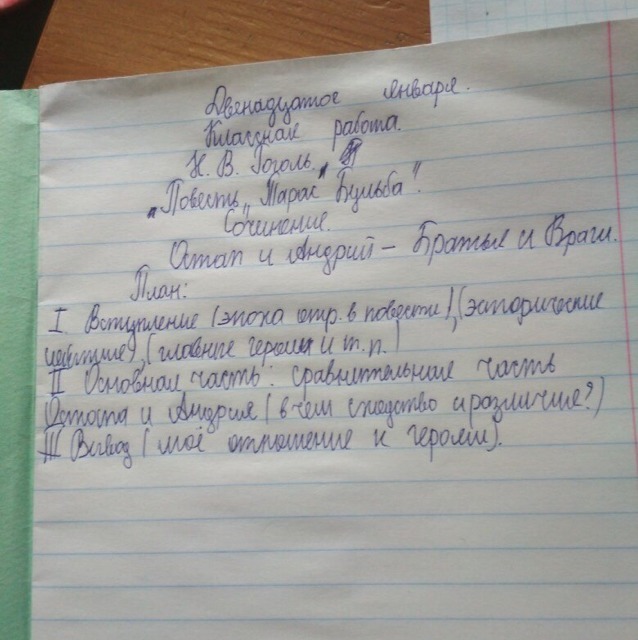 Двенадцатое января.
Классная работа.
Н. В. Гоголь „
„Повесть „Тарас Бульба".
Сочинение.
Остап и Андрий – Братья и Враги.
План:
I Вступление (эпоха отр. в повести), (эсторические
(главные герои и т.п.)
II Основная часть: сравнительная часть
Остапа и Андрия (в чём сходство и различие?)
III Вывод (моё отношение к героям).